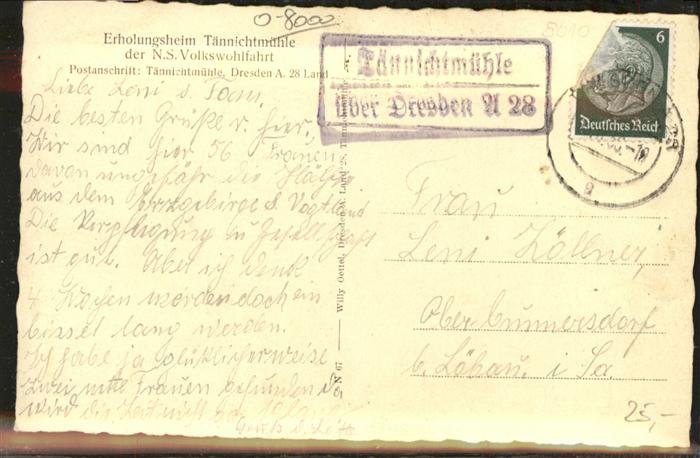 O-8000
Erholungsheim Tännichtmühle
der N.S.Volkswohlfahrt
Postanschrift: Tännichtmühle, Dresden A. 28 Land
Tännichtmühle
über Dresden A 28
6
Deutsches Reich
Liebe Leni u. Fam.
Die besten Grüße v. hier.
Wir sind hier 56 Frauen
davon ungefähr die Hälfte
aus dem Erzgebirge u. Vogtland
Die Verpflegung u Gesellschaft
ist gut. Aber ich denk
4 Wochen werden doch ein
bissel lang werden.
Ich habe ja glücklicherweise
zwei nette Frauen gefunden da
wird die Zeit
Willy Oettel, Dresden A.
N 67
Frau
Leni Zöllner
Obercunnersdorf
b. Löbau i Sa.
25,-